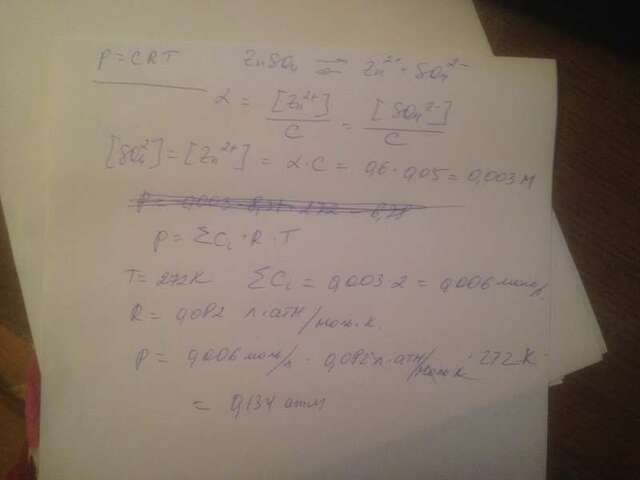 P = CRT
ZnSO₄ ⇌ Zn²⁺ + SO₄²⁻
α = [Zn²⁺]/C = [SO₄²⁻]/C
[SO₄²⁻] = [Zn²⁺] = α·C = 0,6·0,05 = 0,003 М
P = ΣCᵢ·R·T
T = 272 К ΣCᵢ = 0,003·2 = 0,006 моль/л
R = 0,082 л·атм/моль·К
P = 0,006 моль/л · 0,082 л·атм/моль·К · 272 К
= 0,134 атм